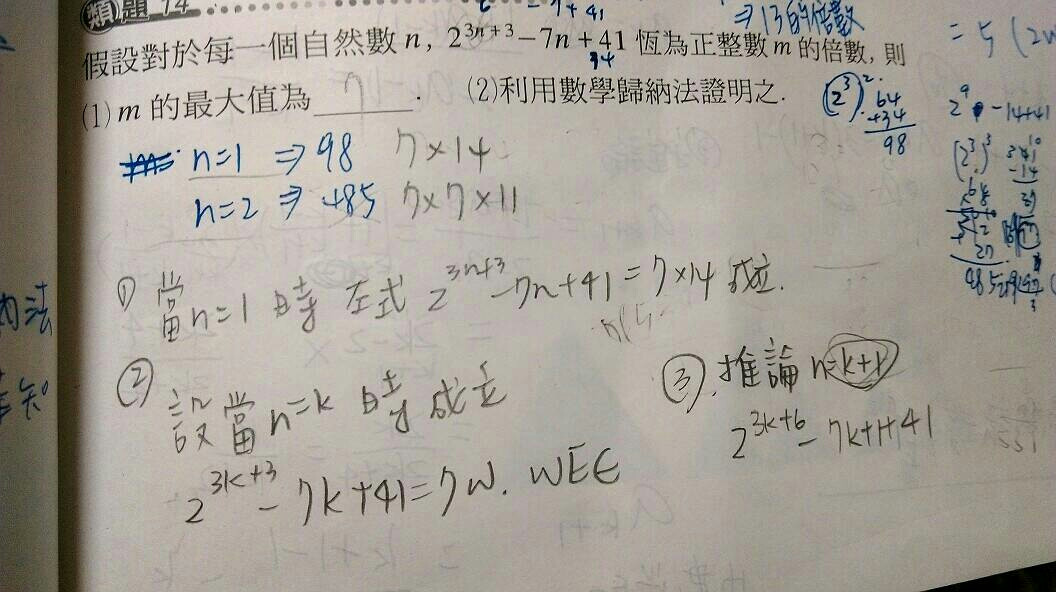 類題 14
-7+41
⇒13的倍數
假設對於每一個自然數 n, 2^{3n+3}-7n+41 恆為正整數 m 的倍數, 則
34
(1) m 的最大值為 7 . (2)利用數學歸納法證明之.
(2^3)^2
64
+34
98
= 5
2^9 -14+41
(2^3)^3
n=1 ⇒ 98 7×14
n=2 ⇒ 485 7×7×11
① 當n=1 時 左式 2^{3n+3}-7n+41=7×14 成立.
② 設當n=k 時 成立
2^{3k+3}-7k+41=7W. WEE
③. 推論 n=k+1
2^{3k+6}-7k+1+41
法